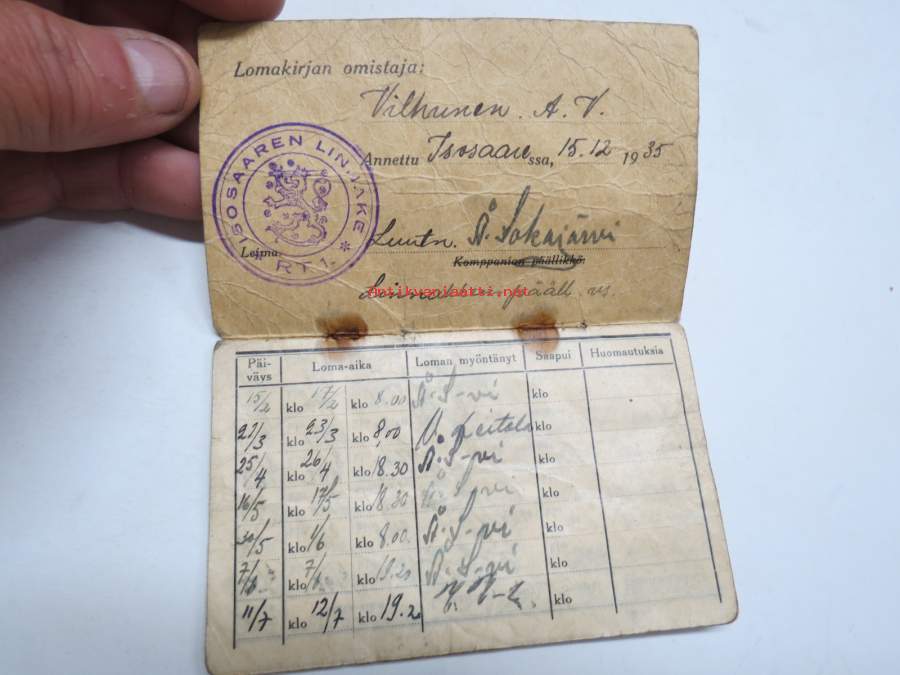 Lomakirjan omistaja:
Vilhunen. A. V.
Annettu Isosaaressa, 15.12 1935
ISOSAAREN LIN. VÄKE * RT 1. *
Leima.
Luutn. Å. Sokajärvi
Komppanian päällikkö.
päall. vs.
antikvariaatti.net
Päiväys Loma-aika Loman myöntänyt Saapui Huomautuksia
15/2 klo 17/2 klo 8.00 Å. S-vi klo
22/3 klo 23/3 klo 8,00 klo
25/4 klo 26/4 klo 18.30 Å. S-vi klo
16/5 klo 17/5 klo 18.30 Å. S-vi klo
30/5 klo 1/6 klo 8.00 Å. S-vi klo
7/6 klo 7/6 klo 19.20 Å. S-vi klo
11/7 klo 12/7 klo 19.2 klo